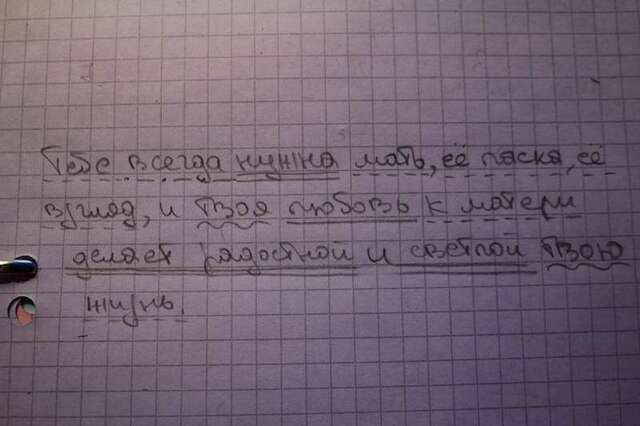 Тебе всегда нужна мать, её ласка, её
взгляд, и твоя любовь к матери
делает радостной и светлой твою
жизнь.